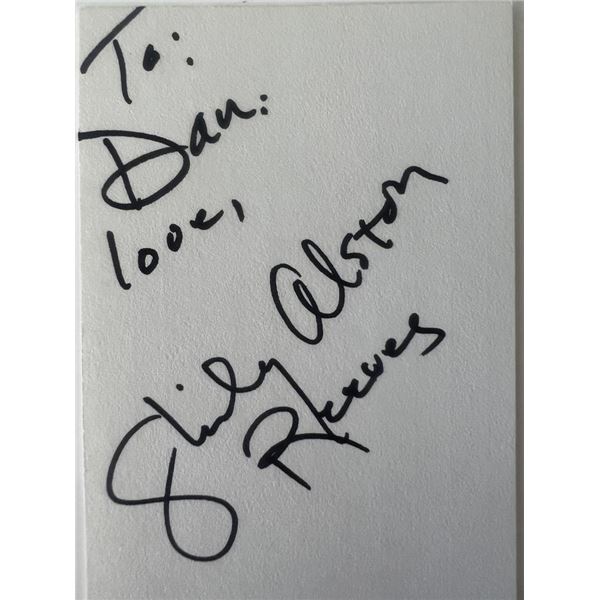 To:
Dan:
love,
Shirley Alston
Reeves